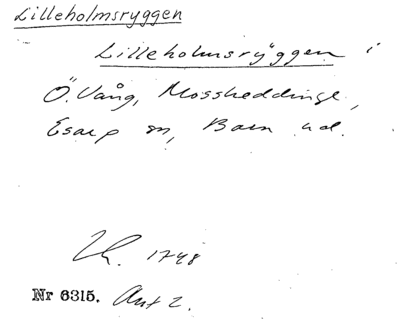 Lilleholmsryggen
Lilleholmsrÿggen i
Ö. Vång, Mossheddinge,
Esarp sn, Bara hd.
1748
Nr 6315. Akt 2.